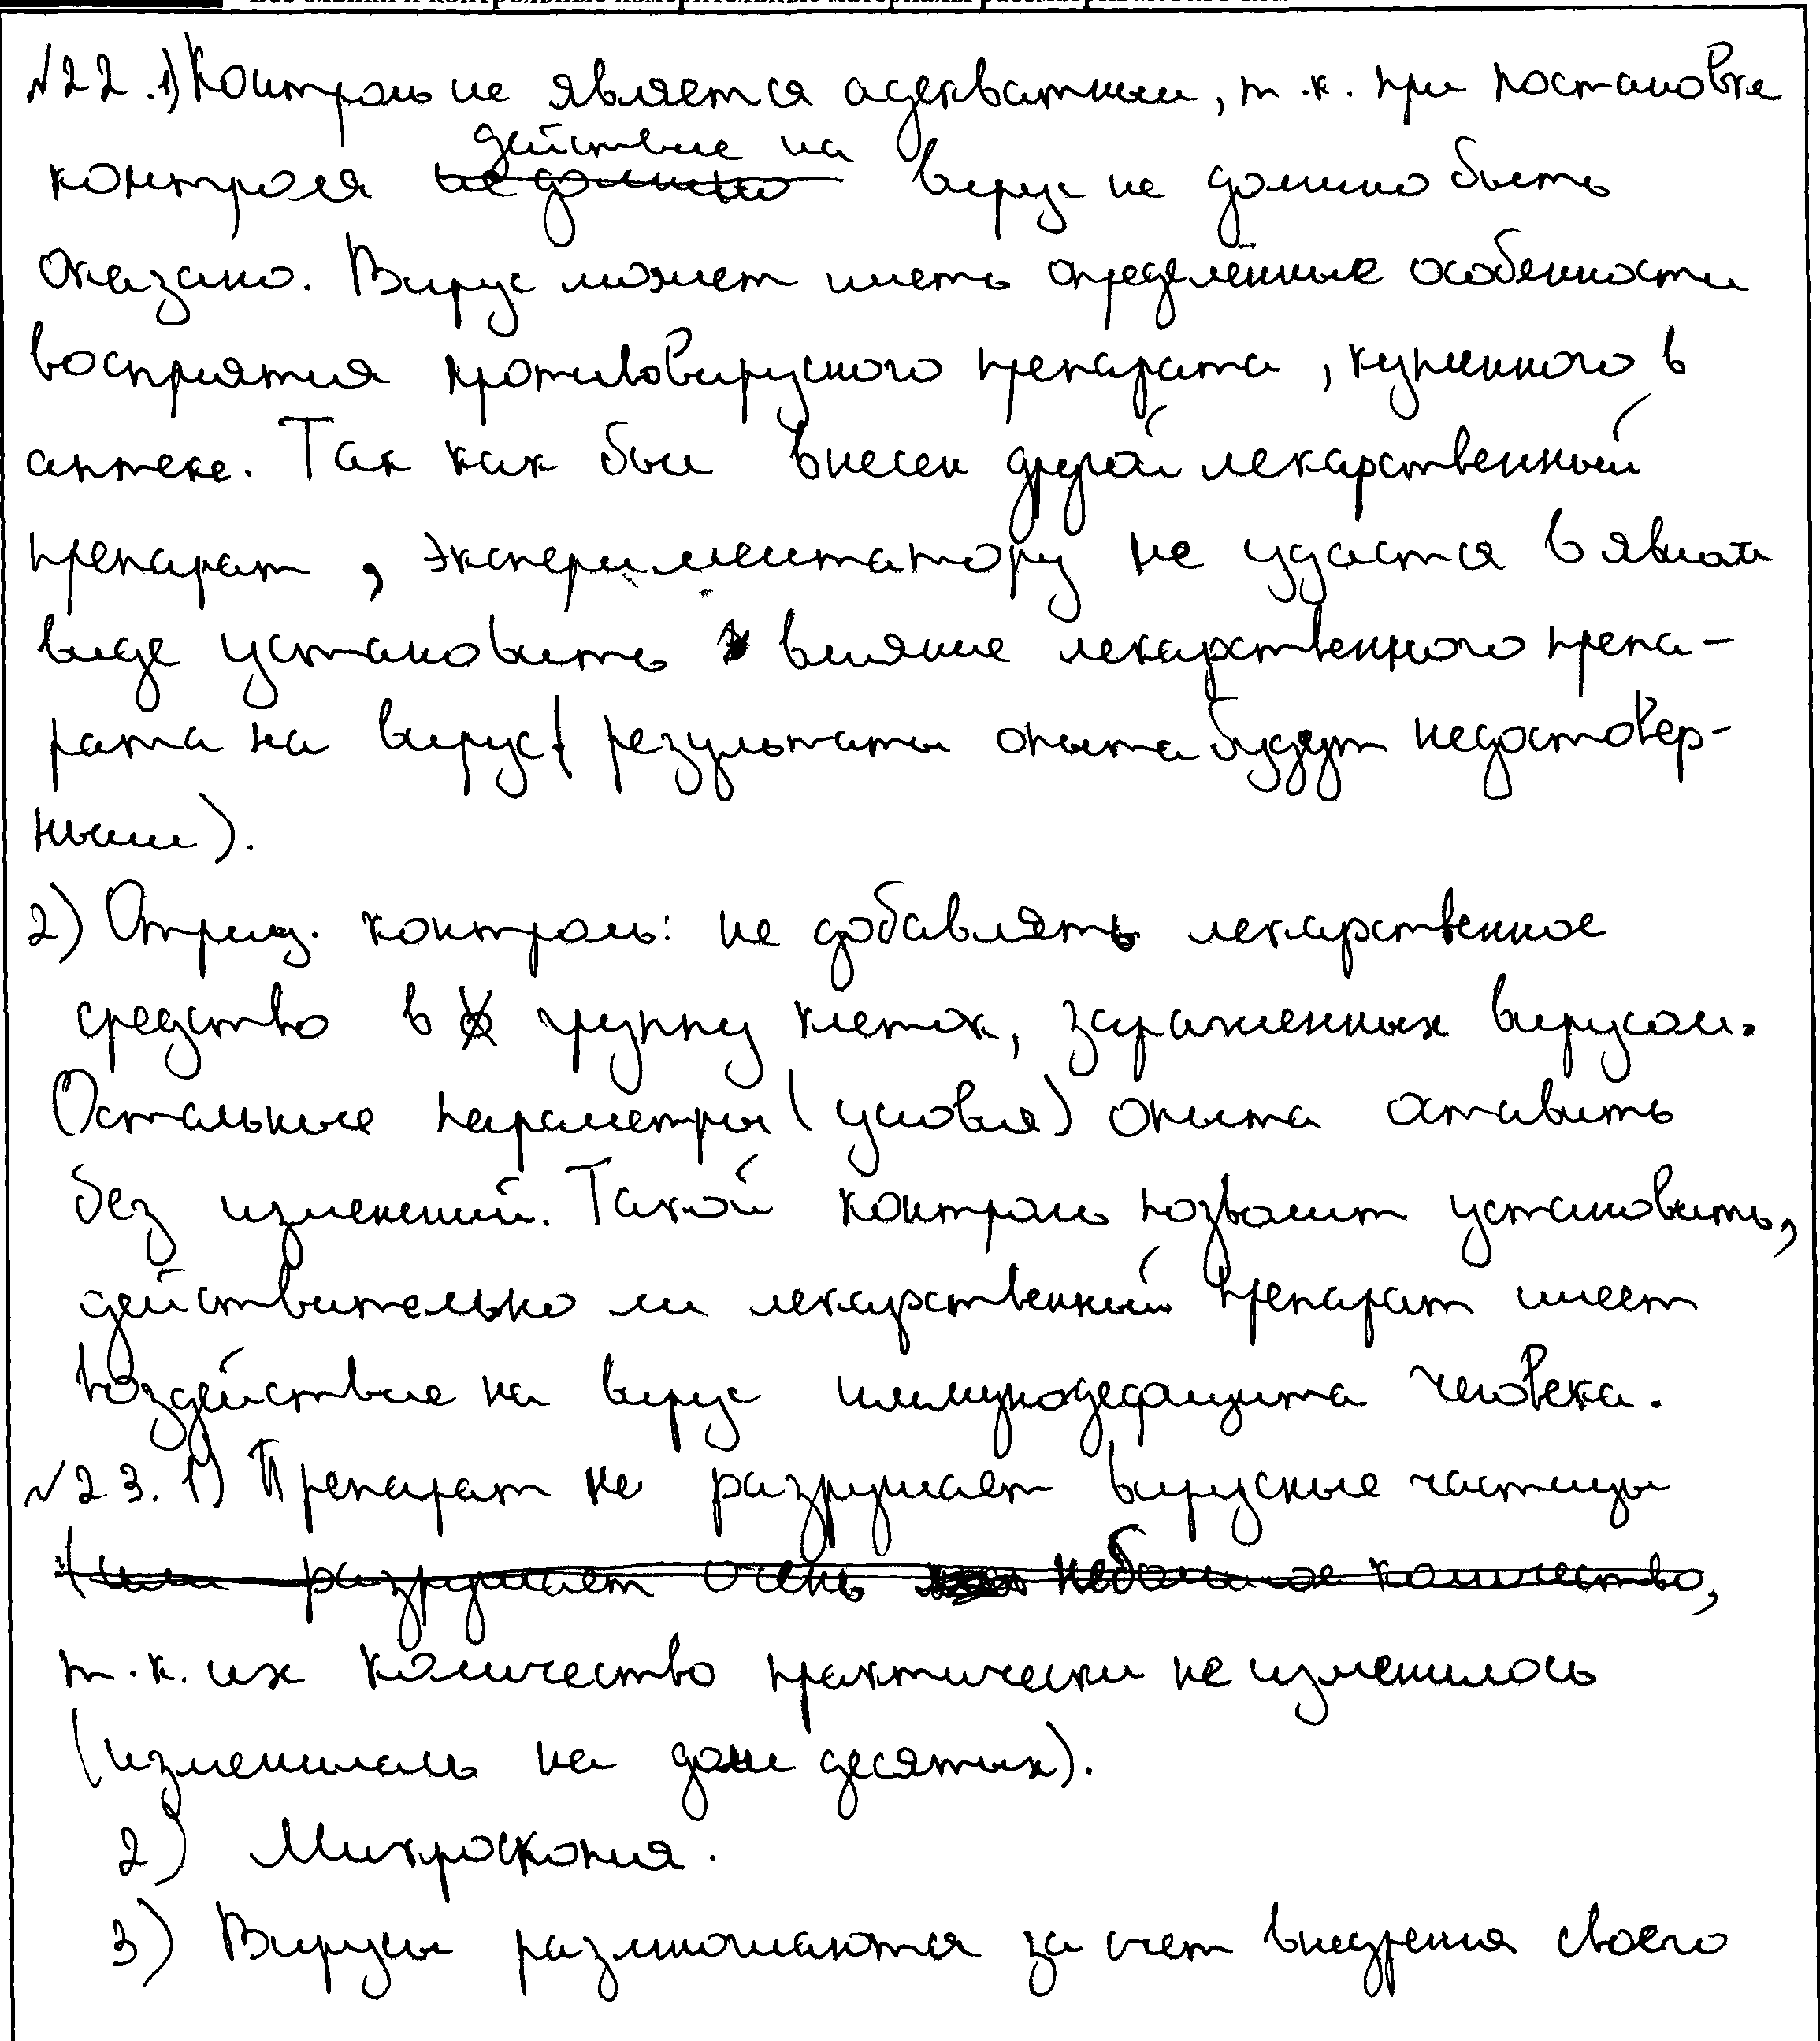 №22. 1) Контроль не является адекватным, т.к. при постановке
действие на
контроля не должно вирус не должно быть
оказано. Вирус может иметь определённые особенности
восприятия противовирусного препарата, купленного в
аптеке. Так как был внесен другой лекарственный
препарат, экспериментатору не удастся в явном
виде установить влияние лекарственного препа-
рата на вирус (результаты опыта будут недостовер-
ными).
2) Отриц. контроль: не добавлять лекарственное
средство в группу клеток, зараженных вирусом.
Остальные параметры (условия) опыта оставить
без изменений. Такой контроль позволит установить,
действительно ли лекарственный препарат имеет
воздействие на вирус иммунодефицита человека.
№23. 1) Препарат не разрушает вирусные частицы
(или разрушает очень небольшое количество,
т.к. их количество практически не изменилось
(изменилось на доли десятых).
2) Микроскопия.
3) Вирусы размножаются за счет внедрения своего